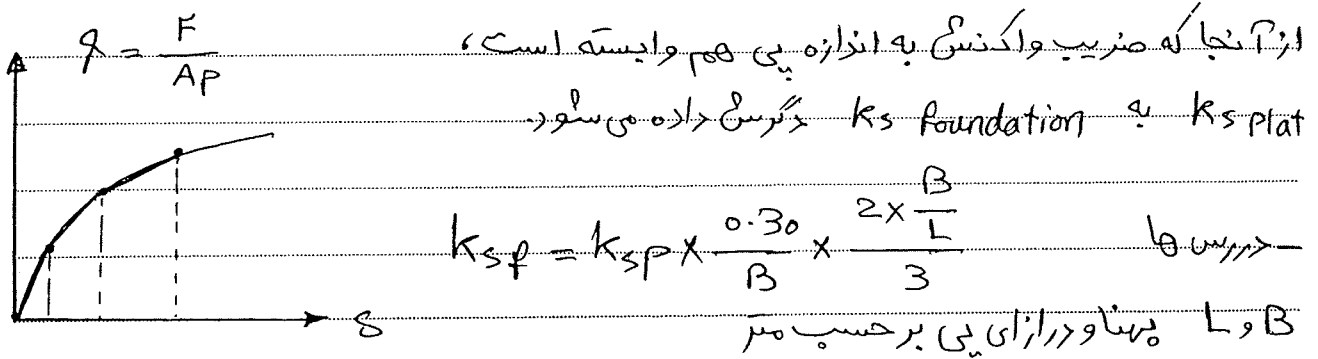 q = F / Ap
از آنجا که ضریب واکنش به اندازه پی هم وابسته است،
ks plat به ks foundation دگرش داده می شود.
– در رس ها ksf = ksp × 0.30 / B × 2 × B/L / 3
B و L پهنا و درازای پی بر حسب متر
δ